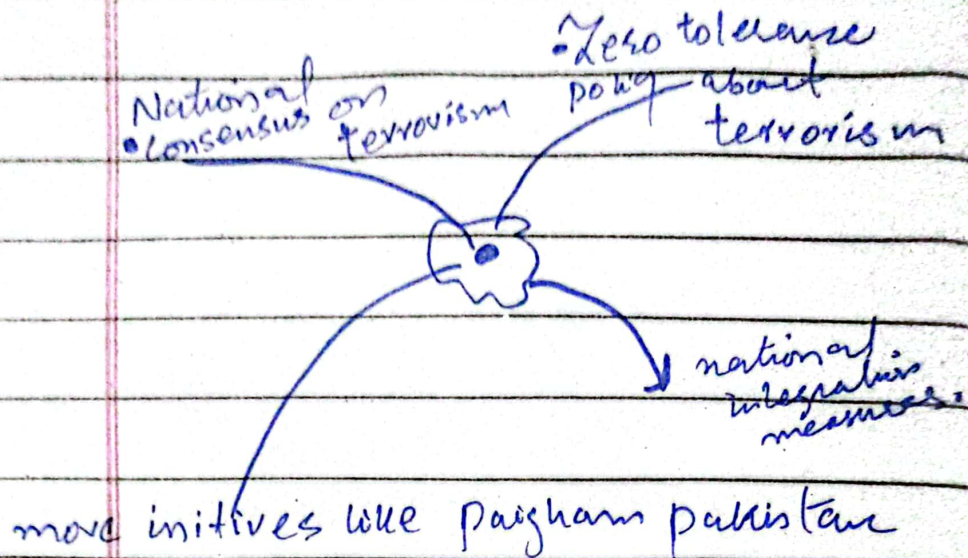 National
• consensus on
terrorism
• Zero tolerance
poliy about
terrorism
national
integration
measures.
more initives like paigham pakistan